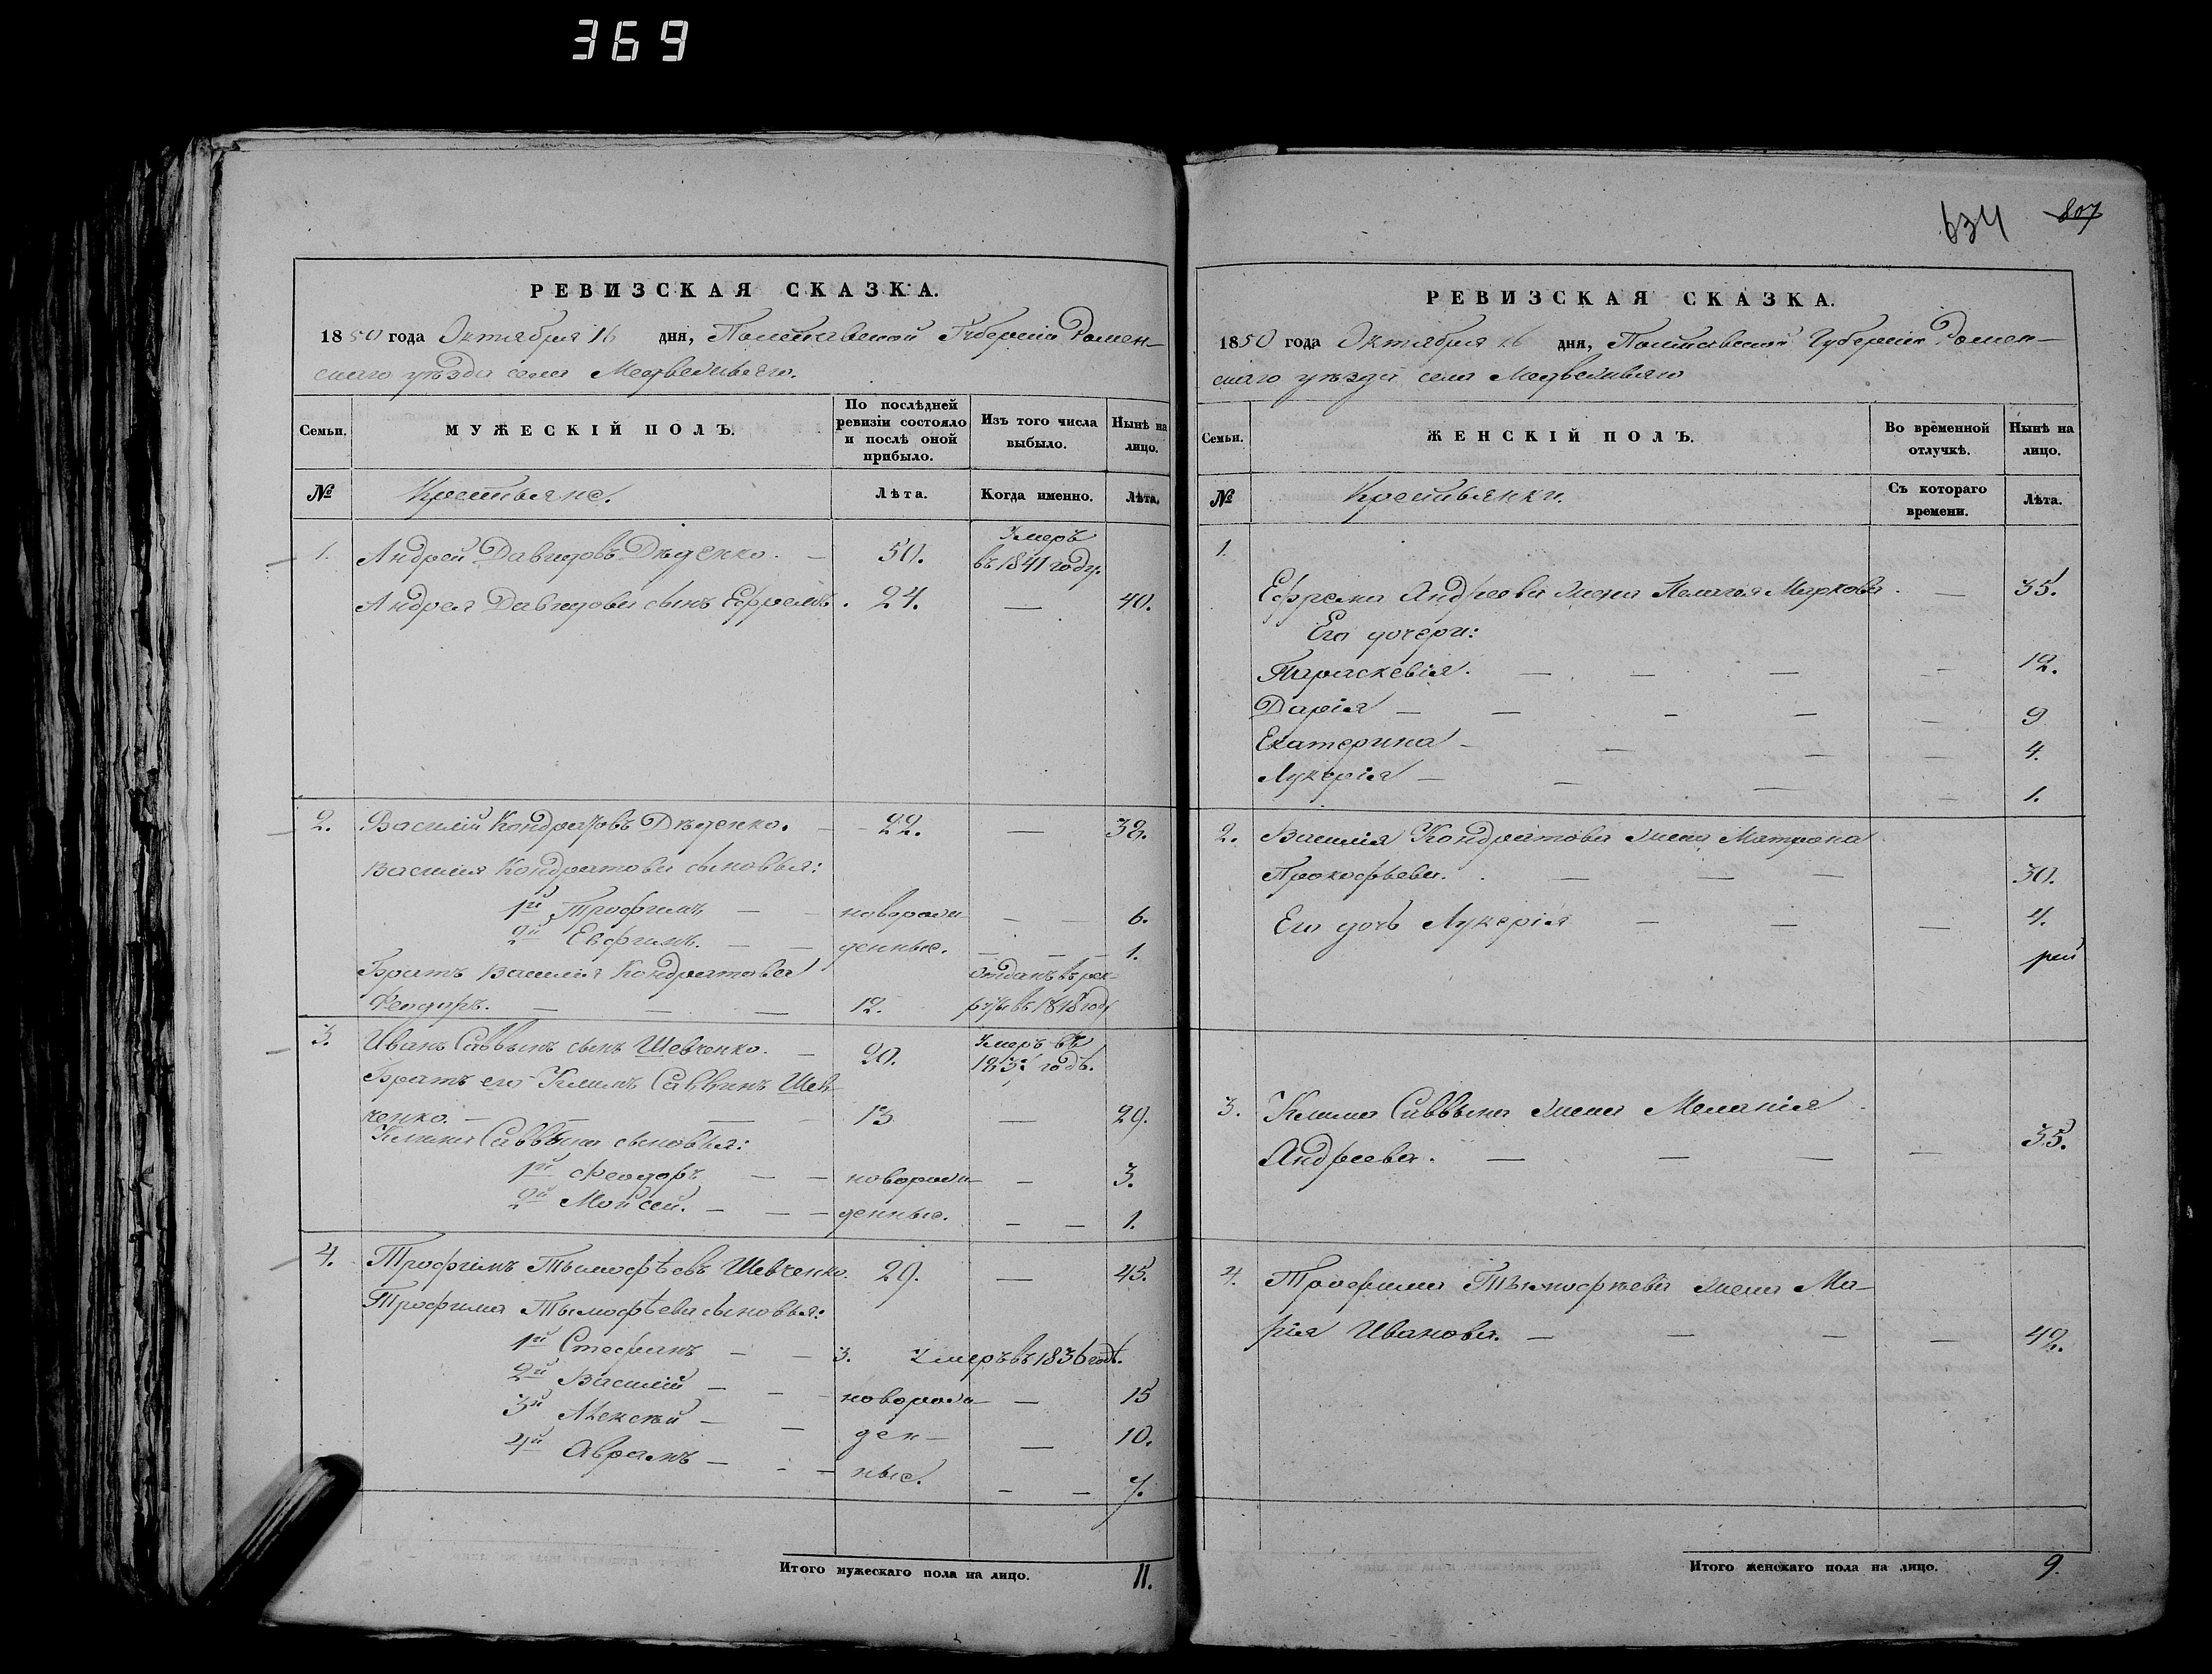 369
634 807
РЕВИЗСКАЯ СКАЗКА.
1850 года Октября 16 дня, Полтавской Губерніи Ромен-
скаго уѣзда села Медвежьяго.
Семьи. МУЖЕСКІЙ ПОЛЪ. По послѣдней ревизіи состояло и послѣ оной прибыло. Изъ того числа выбыло. Нынѣ на лицо.
№ Крестьяне. Лѣта. Когда именно. Лѣта.
1. Андрей Давидовъ Дѣденко. — 50. Умеръ въ 1841 году.
Андрея Давидова сынъ Ефремъ. 24. — 40.
2. Василій Кондратовъ Дѣденко. — 22. — 38.
Василія Кондратова сыновья:
1й Трофимъ — новорож- — — 6.
2й Евфимъ. — — денные. — — 1.
Братъ Василія Кондратова
Феодоръ. — — — 12. Отданъ въ рек-
руты въ 1848 году
3. Иванъ Саввинъ сынъ Шевченко. — 20. Умеръ въ
183 годѣ.
Братъ его Климъ Саввинъ Шев-
ченко. — — — 13 — 29.
Клима Саввина сыновья:
1й Феодоръ — — новорож- — 3.
2й Мойсей. — — — денные. — — 1.
4. Трофимъ Тымофѣевъ Шевченко. 29. — 45.
Трофима Тымофѣева сыновья:
1й Стефанъ — — 3. Умеръ въ 1836 годѣ.
2й Василій — — — новорож- — 15
3й Алексѣй — — ден- — 10.
4й Аврамъ — - — ные. — — 7.
Итого мужескаго пола на лицо. 11.
РЕВИЗСКАЯ СКАЗКА.
1850 года Октября 16 дня, Полтавской Губерніи Ромен-
скаго уѣзда села Медвежьяго
Семьи. ЖЕНСКІЙ ПОЛЪ. Во врѐменной отлучкѣ. Нынѣ на лицо.
№ Крестьянки. Съ котораго времени. Лѣта.
1.
Ефрема Андреева жена Пелагея Маркова. — 35.
Его дочери:
Параскевія. — — — — 12.
Дарія — — - — — 9
Екатерина — — — — 4.
Лукерія — — — — 1.
2. Василія Кондратова жена Матрона
Прокофьева. — — — 30.
Его дочь Лукерія — — — 4.
3. Клима Саввына жена Меланія
Андреева. — — — — 35.
4. Трофима Тымофѣева жена Ма-
рія Иванова. — — — — 42.
Итого женскаго пола на лицо. 9.